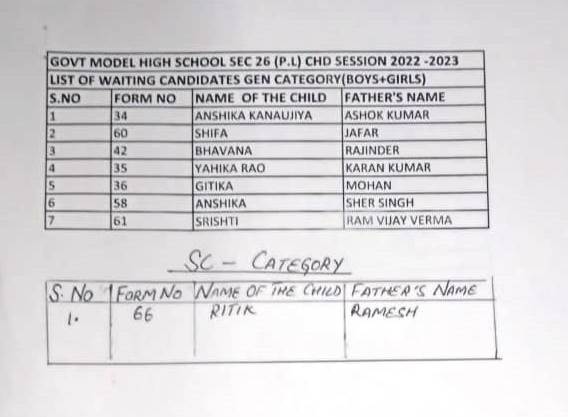 GOVT MODEL HIGH SCHOOL SEC 26 (P.L) CHD SESSION 2022 -2023
LIST OF WAITING CANDIDATES GEN CATEGORY(BOYS+GIRLS)
S.NO FORM NO NAME OF THE CHILD FATHER'S NAME
1 34 ANSHIKA KANAUJIYA ASHOK KUMAR
2 60 SHIFA JAFAR
3 42 BHAVANA RAJINDER
4 35 YAHIKA RAO KARAN KUMAR
5 36 GITIKA MOHAN
6 58 ANSHIKA SHER SINGH
7 61 SRISHTI RAM VIJAY VERMA
SC - CATEGORY
S. No FORM No NAME OF THE CHILD FATHER'S NAME
1. 66 RITIK RAMESH